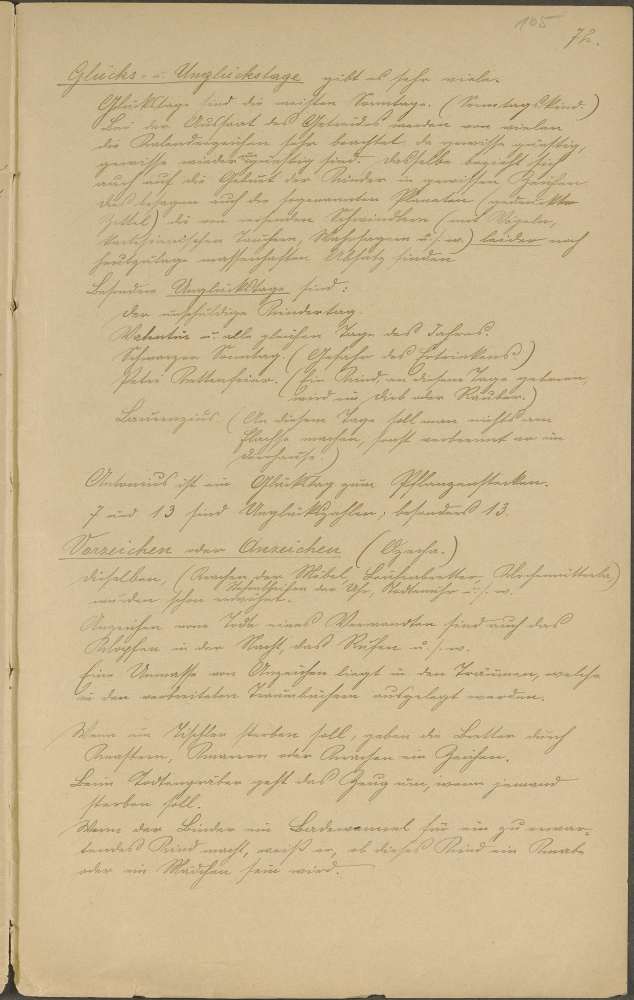 105
72.
Glücks- u. Unglückstage gibt es sehr viele.
Glückstage sind die meisten Sonntage. (Sonntagskind.)
Bei der Aussaat des Getreides werden von vielen
die Kalenderzeichen sehr beachtet, da gewisse günstig,
gewisse wieder ungünstig sind. Dasselbe bezieht sich
auch auf die Geburt der Kinder in gewissen Zeichen.
Das besagen auch die sogenannten Planeten (gedruckte
Zettel) die von reisenden Schwindlern (mit Vögeln,
kartesianischen Tauchern, Wahrsagern u. s. w.) leider noch
heutzutage massenhaften Absatz finden.
Besondere Unglückstage sind:
Der unschuldige Kindertag.
Valentin u. alle gleichen Tage des Jahres.
Schwarzer Sonntag. (Gefahr des Ertrinkens.)
Petri Kettenfeier. (Ein Kind, an diesem Tage geboren,
wird ein Dieb oder Räuber.)
Laurenzius (An diesem Tage soll man nichts am
Flachse machen, sonst verbrennt er im
Dörrhause.)
Antonius ist ein Glückstag zum Pflanzenstecken.
7 und 13 sind Unglückszahlen, besonders 13.
Vorzeichen oder Anzeichen (Ozecha.)
Dieselben, (Krachen der Möbel,
Stehenbleiben der Uhr, u. s. w.
wurden schon erwähnt.
Anzeichen vom Tode eines Verwandten sind auch das
Klopfen in der Nacht, das Rufen u. s. w.
Eine Unmasse von Anzeichen liegt in den Träumen, welche
in den verbreiteten Traumbüchern ausgelegt werden.
Wenn ein Tischler sterben soll, geben die Bretter durch
Knastern, Knarren oder Krachen ein Zeichen.
Beim Todtengräber geht das Zeug um, wenn jemand
sterben soll.
Wenn der Binder ein Badewannel für ein zu erwar-
tendes Kind macht, weiß er, ob dieses Kind ein Knabe
oder ein Mädchen sein wird.